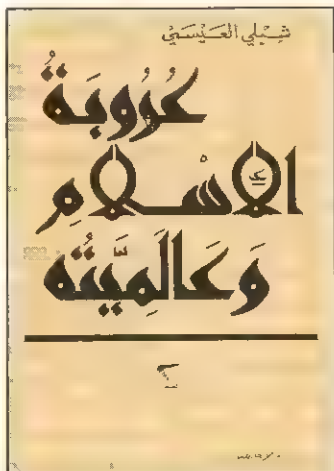 شبلي العيسمي
عُرُوبَةُ
الإِسْلَامِ
وَعَالَمِيَّتُه